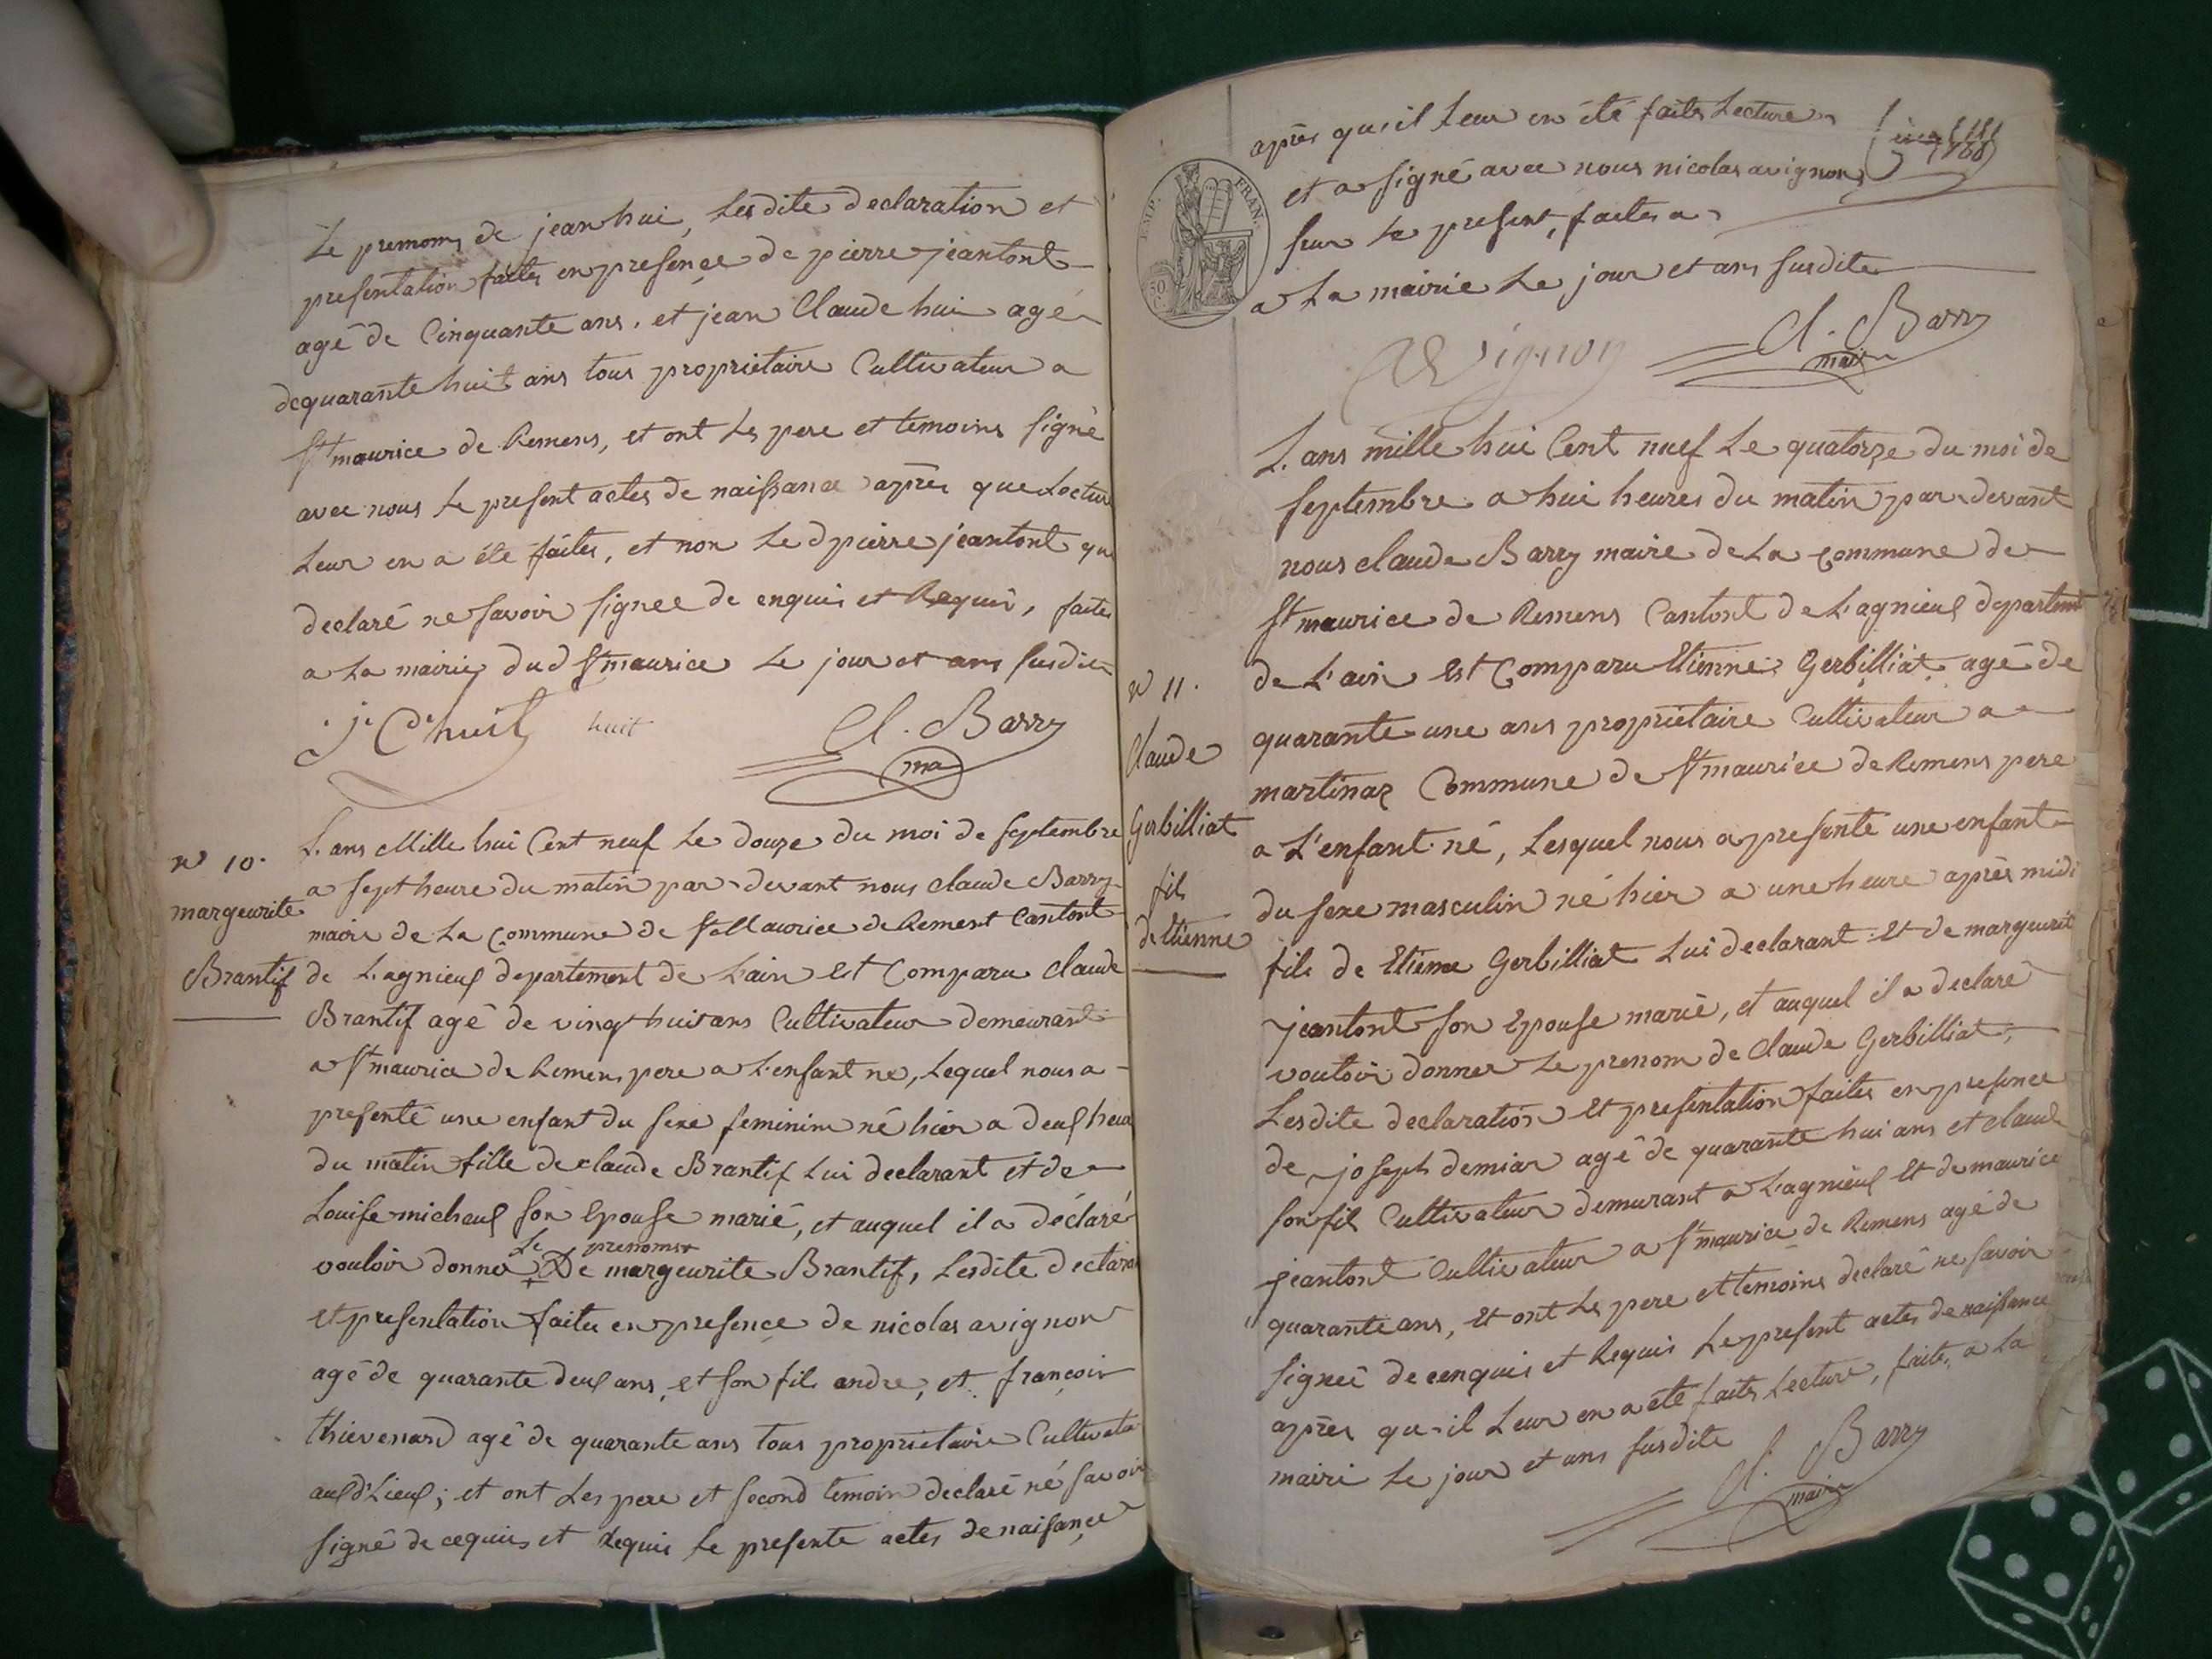 Le prenoms de jean hui, Lesdite declaration et
presentation faites en presençe de pierre jeantont
agé de Cinquante ans, et jean Claude hui agé
de quarante huit ans tous proprietaire Cultivateur a
St maurice de Remens, et ont Les pere et temoins signé
avec nous Le present actes de naissance après que Lectur
Leur en a été faites, et non Led pierre jeantont qu
declaré ne savoir signee de enquis et Requis, faites
a La mairie dud St maurice Le jour et ans susdit
j. C. huit huit Cl. Barry
ma
n 10.
margeurite
Brantif
L. ans Mille hui Cent neuf Le douze du moi de septembre
a sept heure du matin par devant nous claude Barry
maire de La commune de St Maurice de Rement Cantont
de L.agnieux departement de L'ain Est Comparu claude
Brantif agé de vingt huit ans Cultivateur demeurant
a St maurice de Remens pere a L'enfant né, Lequel nous a
presenté une enfant du sexe feminin né hier a deux heur
du matin fille de claude Brantif Lui declarant et de
Louise michaux son Epouse marié, et auquel il a déclaré
Le prenoms
vouloir donner De margeurite Brantif, Lesdite declara
et presentation faites en presence de nicolas avignon
agé de quarante deux ans, et son fils andre, et françois
thievenard agé de quarante ans tous proprietaire Cultivate
aud. Lieux; et ont Les pere et second temoin declaré né savoir
signé de cequis et Requis Le presente actes de naisançe
après qu'il Leur en été faites Lecture
et a signé avec nous nicolas avignon
sur Le present, faites a
a La mairie Le jour et ans susdite
EMP. FRAN.
50 C.
avignon Cl. Barry
maire
n 11.
Claude
Gerbilliat
fils
d'Etienne
L. ans mille hui Cent neuf Le quatorze du moi de
septembre a hui heures du matin par devant
nous claude Barry maire de La commune de
St maurice de Remens Cantont de L'agnieux departemt
de L'ain Est Comparu Etienne Gerbilliat agé de
quarante une ans proprietaire Cultivateur a
martinaz Commune de St maurice de Remens pere
a L'enfant né, Lesquel nous a presenté une enfant
du sexe masculin né hier a une heure après midi
fils de Etienne Gerbilliat Lui declarant Et de margeurit
jeantont son Epouse marié, et auquel il a declaré
vouloir donner Le prenom de Claude Gerbilliat,
Lesdite declaration Et presentation faites en presence
de joseph demiar agé de quarante hui ans et claud
son fil Cultivateur demurant a L'agnieux Et de maurice
jeantont Cultivateur a St maurice de Remens agé de
quarante ans, Et ont Les pere et temoins declaré ne savoir
signeé de cenquis et Requis Le present actes de naissance
après qu-il Leur en a été faites Lecture, faite, a La
mairi Le jour et ans susdite
Cl. Barry
maire